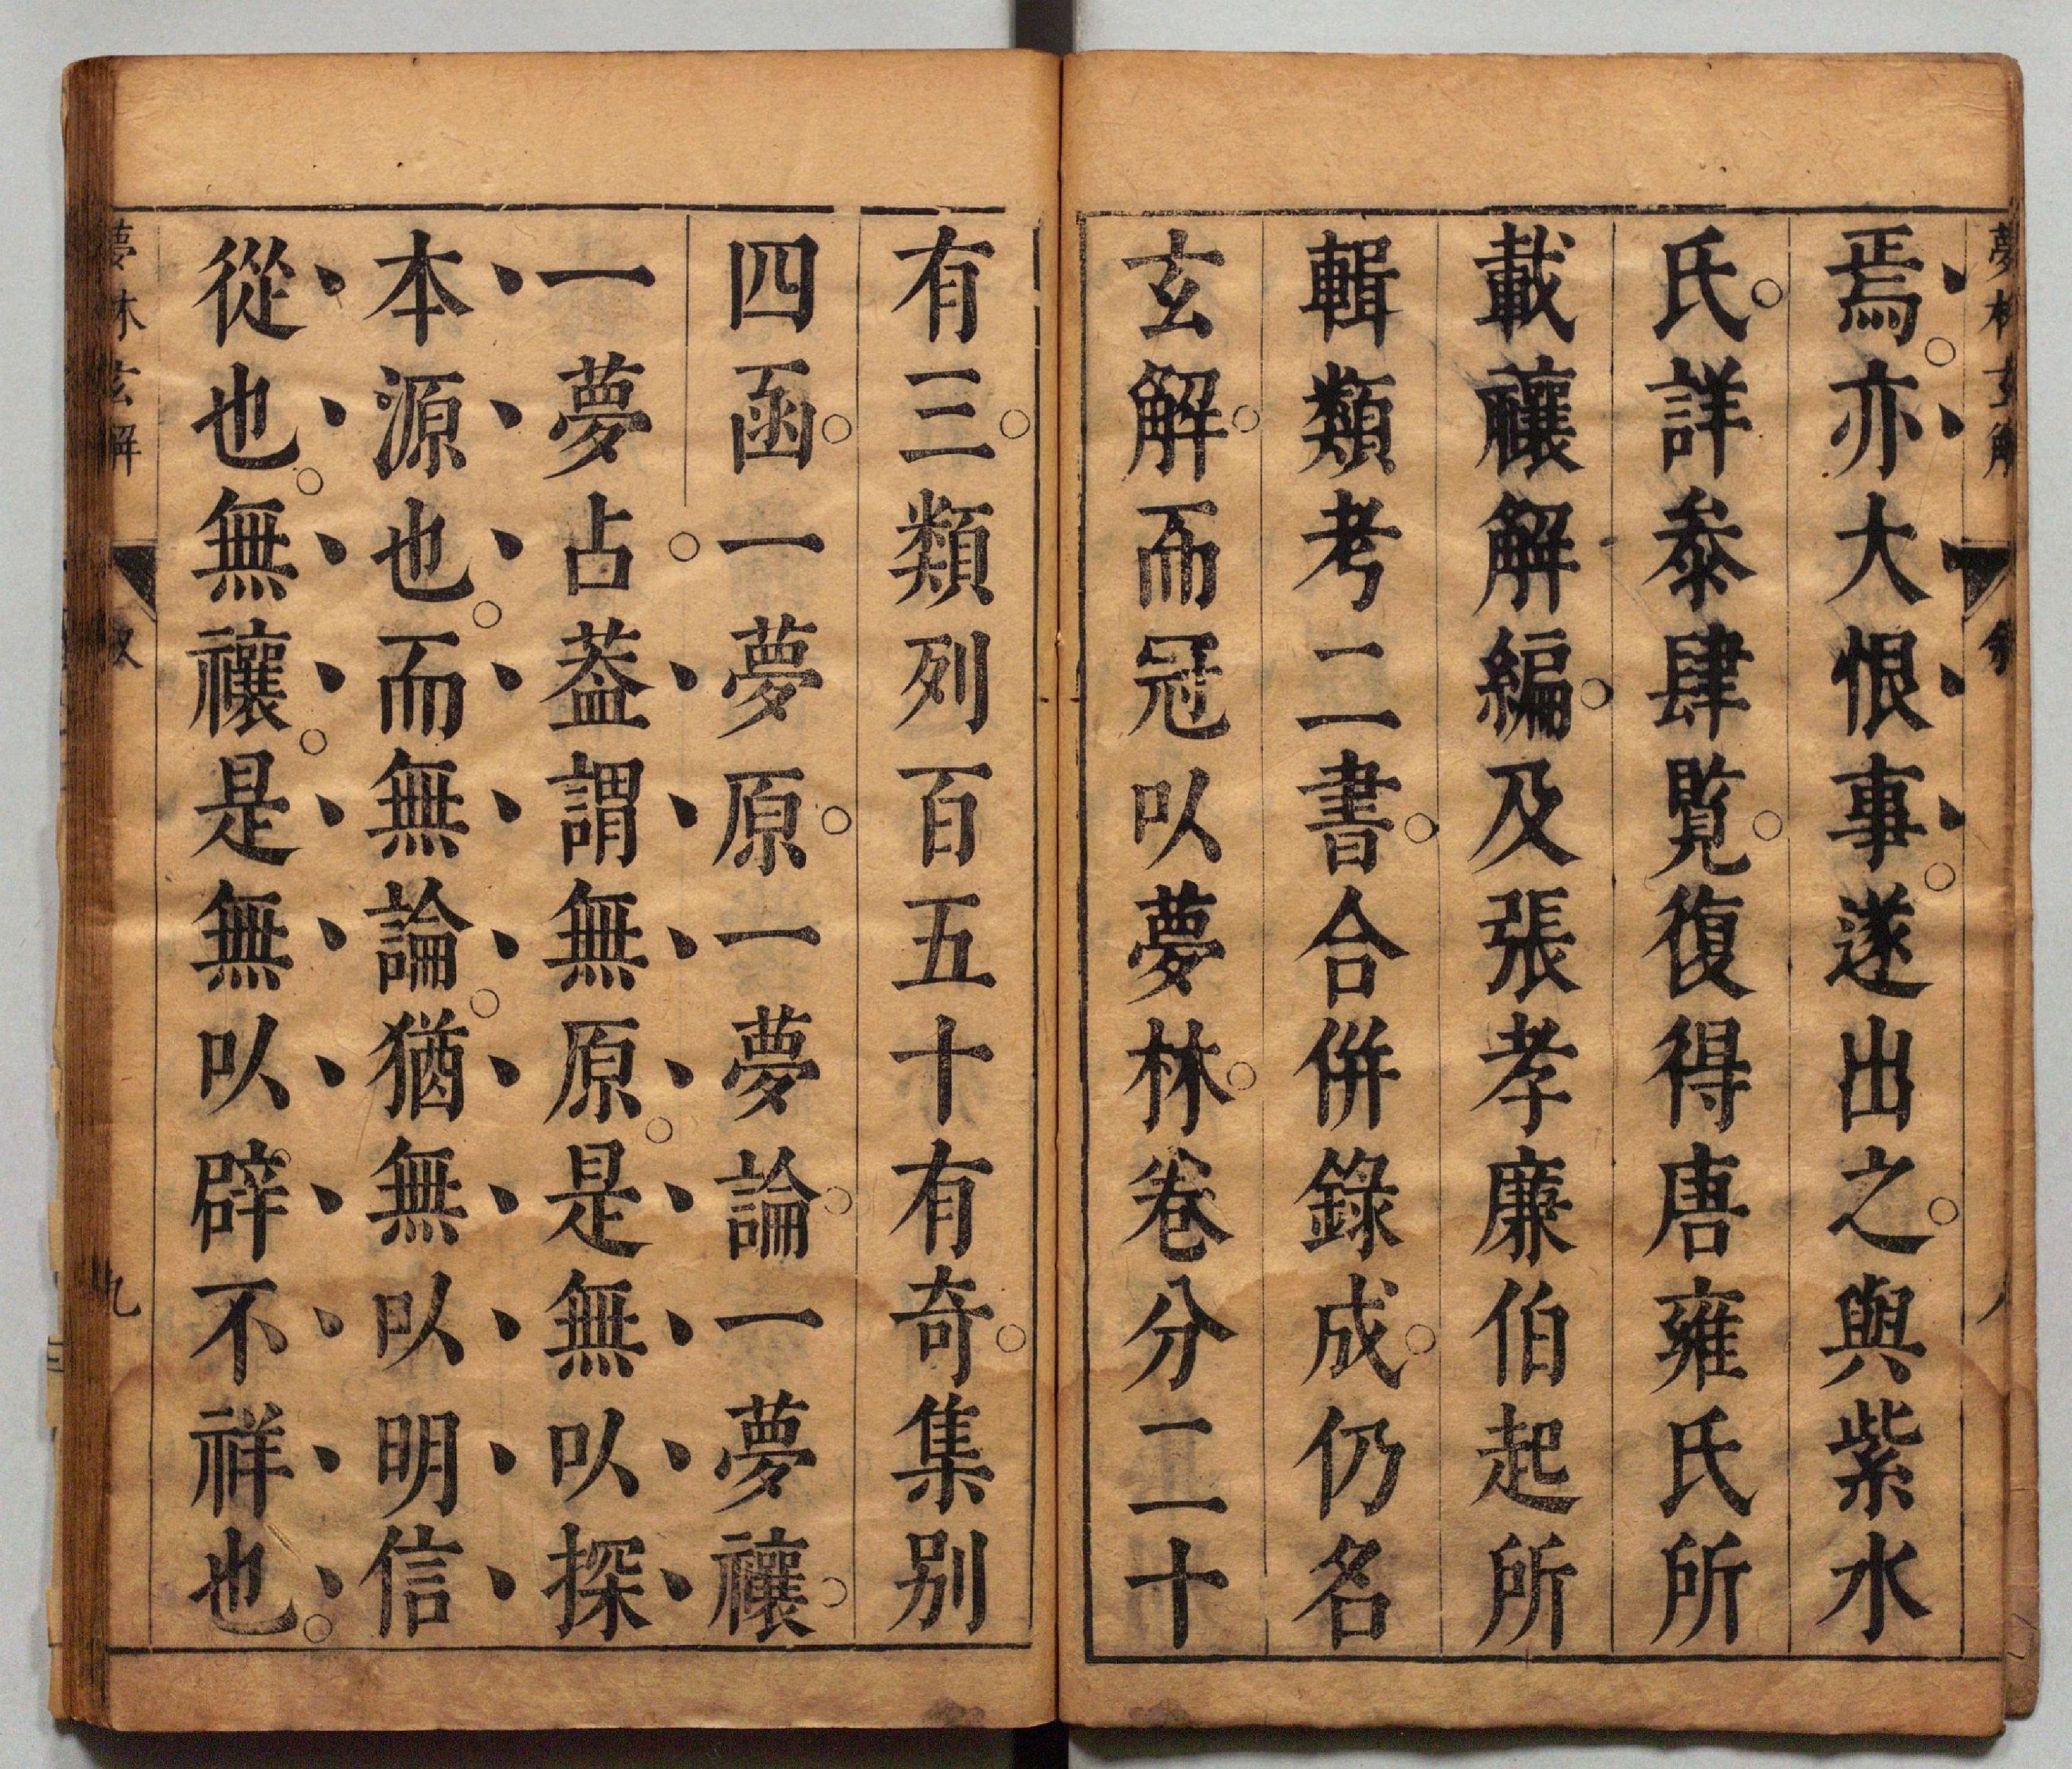 焉亦大恨事遂出之與紫水
氏詳叅肆覧復得唐雍氏所
載禳解編及張孝廉伯起所
輯類考二書合併錄成仍名
玄解而冠以夢林卷分二十
有三類列百五十有奇集别
四函一夢原一夢論一夢禳
一夢占葢謂無原是無以探
本源也而無論猶無以明信
從也無禳是無以辟不祥也
夢林玄解
九